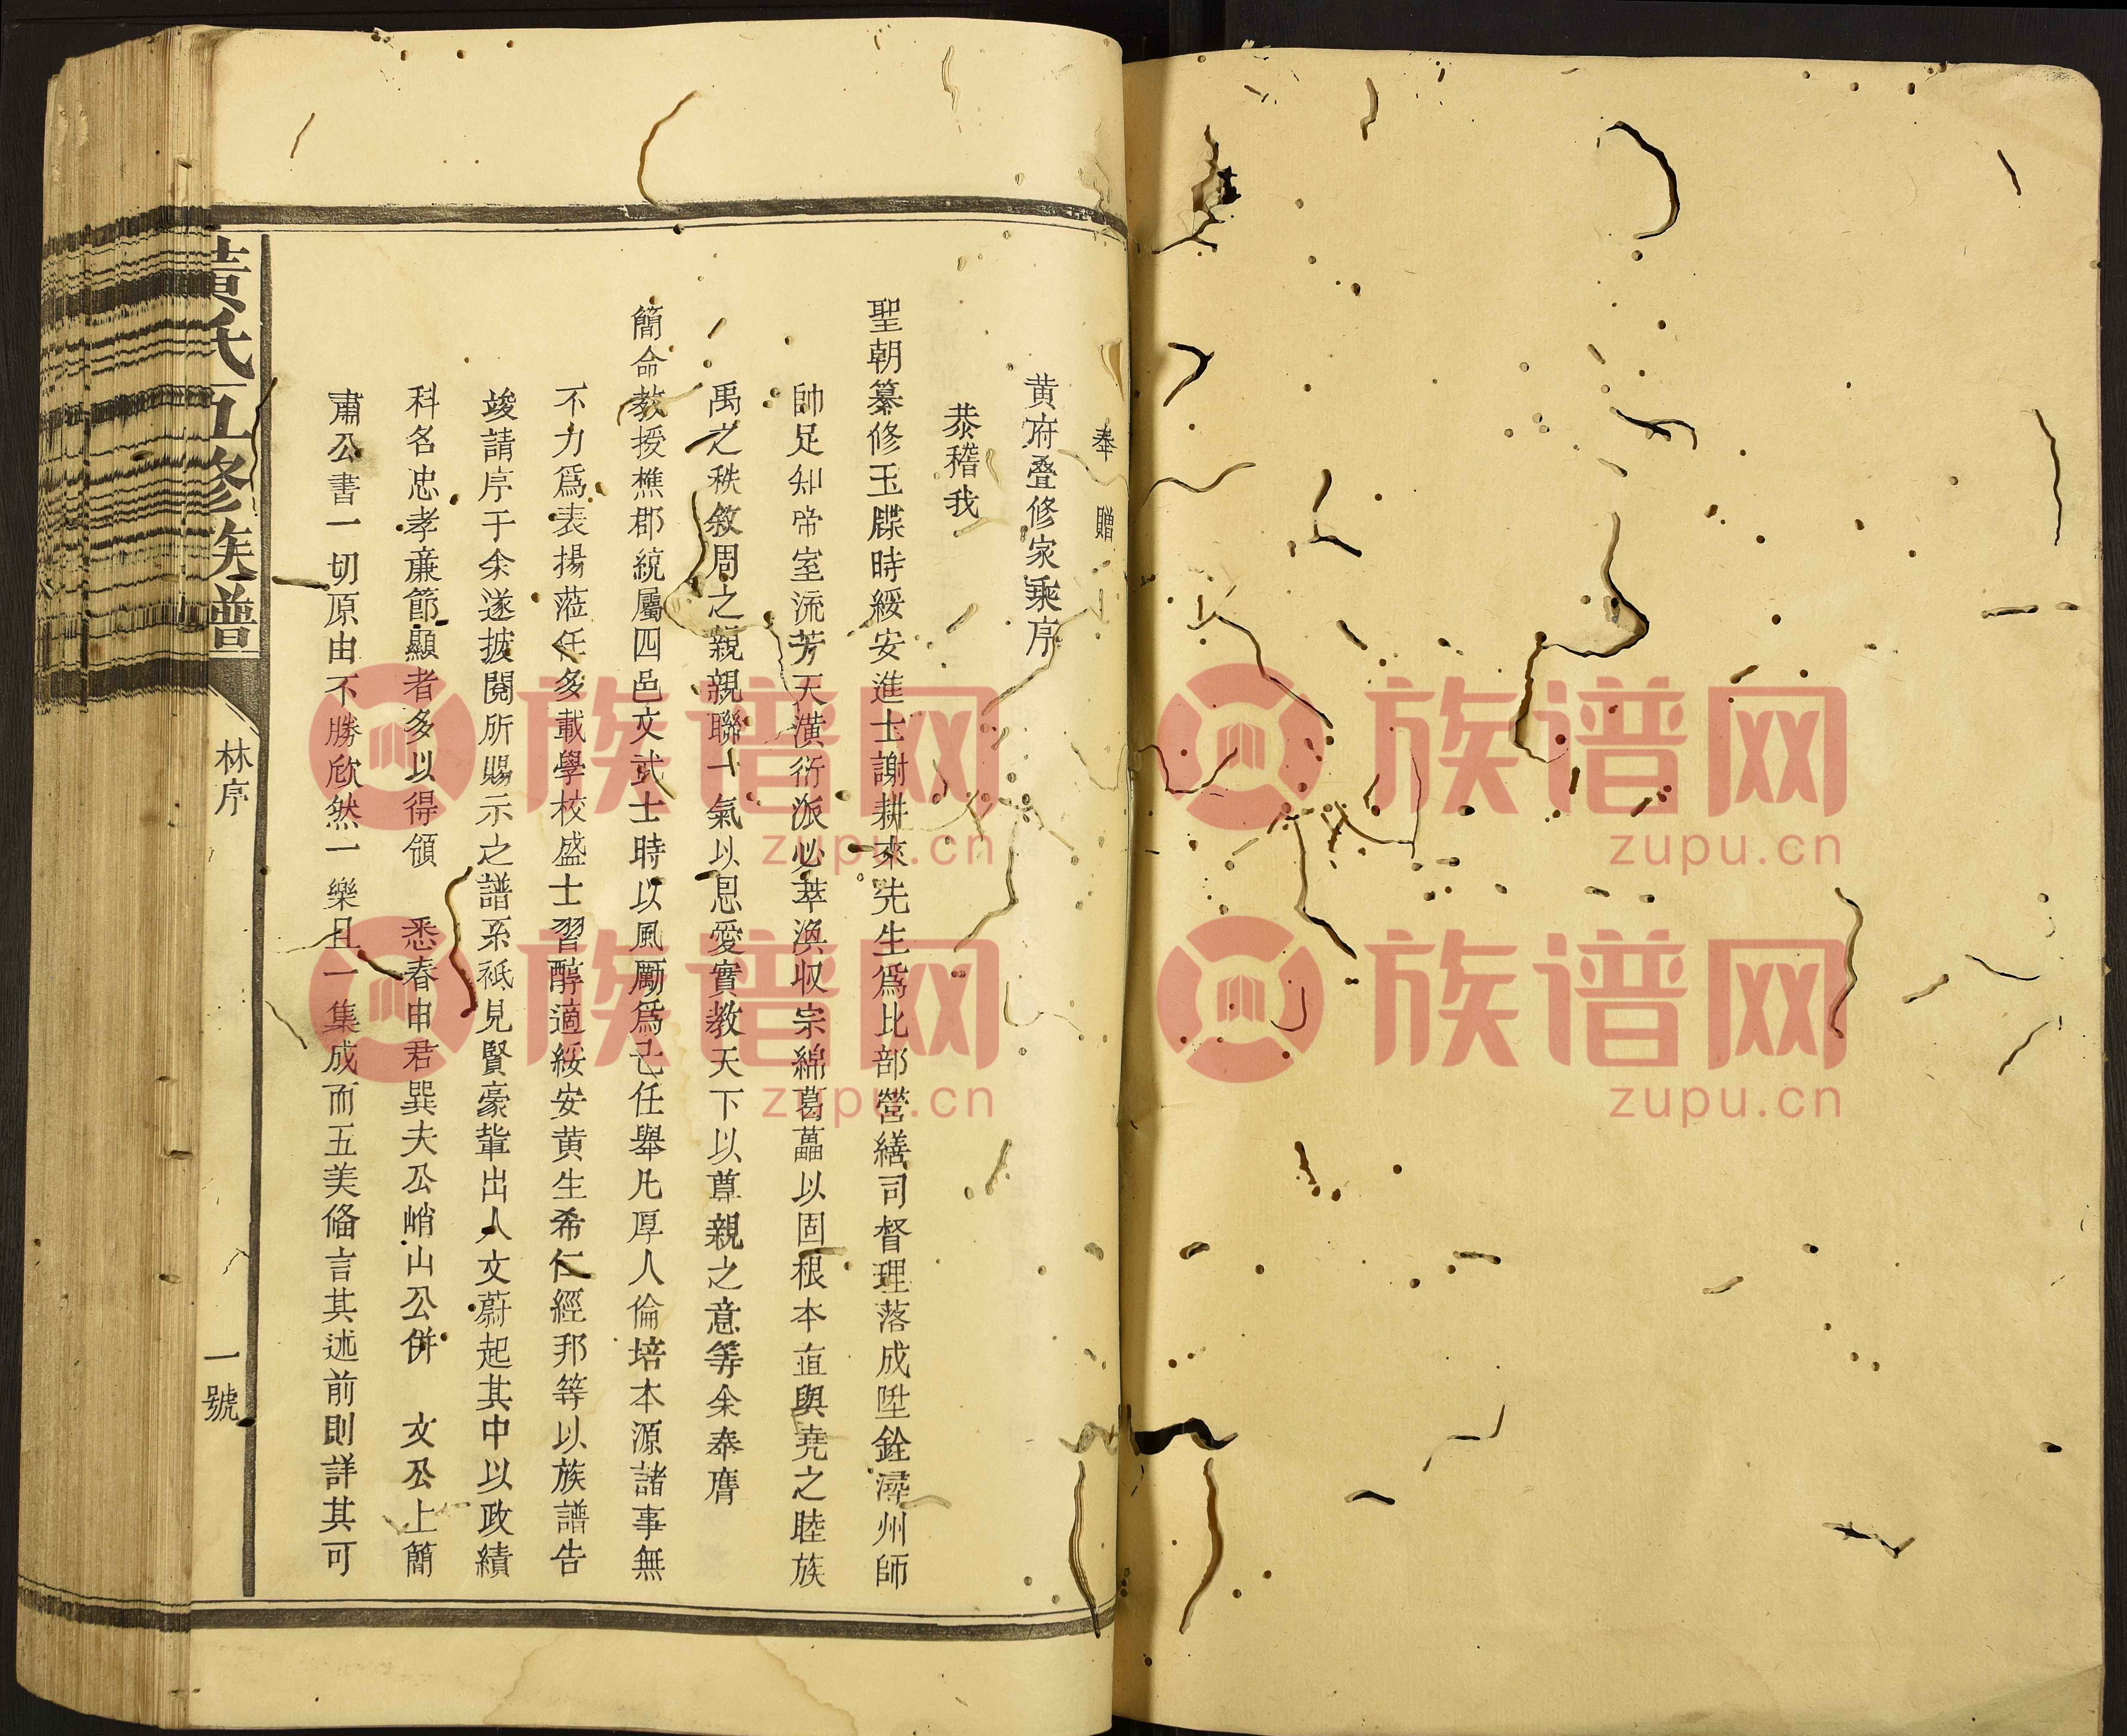 奉贈
黄府叠修家乘序
恭稽我
聖朝纂修玉牒時綏安進士謝耕來先生爲比部營繕司督理落成陞銓潯州師
帥足知帝室流芳天潢衍派必萃渙収宗綿葛藟以固根本直與堯之睦族
禹之秩敘周之親親聯一氣以恩愛實教天下以尊親之意等余奉膺
簡命教授樵郡統屬四邑文武士時以風勵爲己任舉凡厚人倫培本源諸事無
不力爲表揚蒞任多載學校盛士習醇適綏安黄生希仁經邦等以族譜告
竣請序于余遂披閱所賜示之譜系祇見賢豪輩出人文蔚起其中以政績
科名忠孝亷節顯者多以得領 悉春申君巽夫公峭山公併 文公上簡
肅公書一切原由不勝欣然一樂且一集成而五美俻言其述前則詳其可
黄氏五修族譜
林序
一號
族谱网
zupu.cn
族谱网
zupu.cn
族谱网
zupu.cn
族谱网
zupu.cn